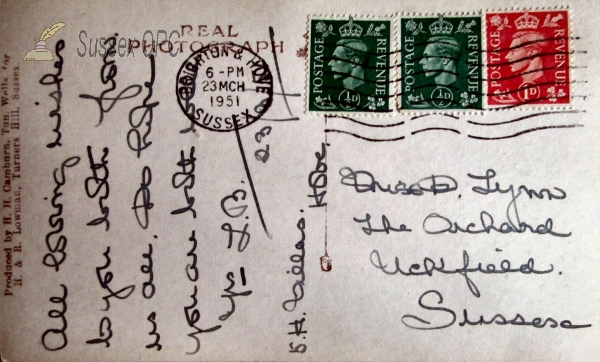 Sussex OPC
REAL
PHOTOGRAPH
BRIGHTON & HOVE
6-PM
23 MCH
1951
SUSSEX
POSTAGE REVENUE
½D
POSTAGE REVENUE
½D
POSTAGE REVENUE
1D
Produced by H. H. Camburn, Tun. Wells for
H. & R. Lowman, Turners Hill, Sussex
All loving wishes
to you both from
us all. Do hope
you are both
Yrs L.B.
23
Villas. Hove.
Miss D. Lynn
The Orchard
Uckfield.
Sussex